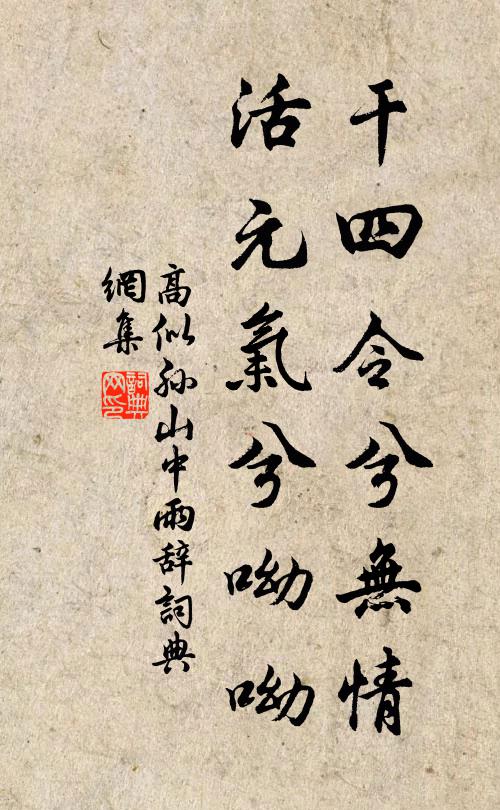 干四令兮無情
活元氣兮呦呦
高似孙山中雨辞詞典
網集
詞典
网印